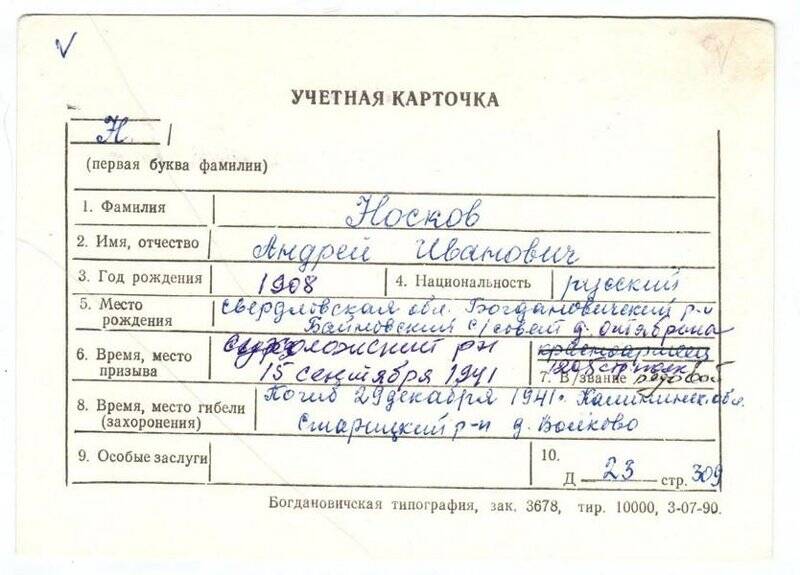 УЧЕТНАЯ КАРТОЧКА
Н.
(первая буква фамилии)
1. Фамилия Носков
2. Имя, отчество Андрей Иванович
3. Год рождения 1908 4. Национальность русский
5. Место рождения Свердловская обл. Богдановический р-н
Байновский с/совет д. Октябрина
6. Время, место призыва Сухоложский рн
15 сентября 1941
красноармеец
1205 стр. полк
7. В/звание рядовой
8. Время, место гибели (захоронения) Погиб 29 декабря 1941г. Калининск. обл.
Старицкий р-н д. Волково
9. Особые заслуги
10.
Д 23 стр. 309
Богдановичская типография, зак. 3678, тир. 10000, 3-07-90.